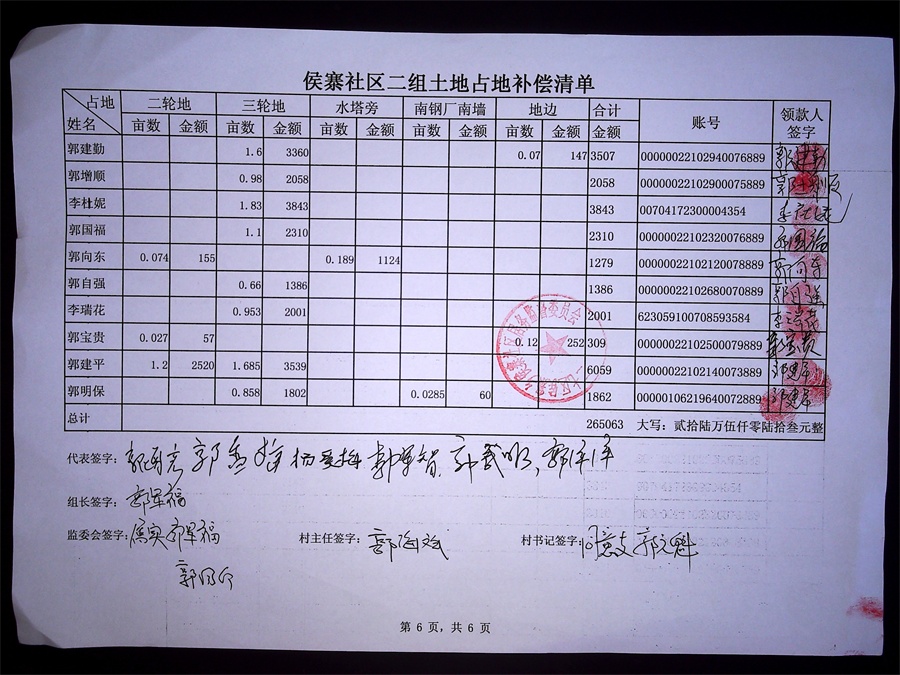 侯寨社区二组土地占地补偿清单
占地 姓名 二轮地 三轮地 水塔旁 南钢厂南墙 地边 合计 账号 领款人签字
亩数 金额 亩数 金额 亩数 金额 亩数 金额 亩数 金额 金额
郭建勤 1.6 3360 0.07 147 3507 00000022102940076889 郭建勤
郭增顺 0.98 2058 2058 00000022102900075889
李杜妮 1.83 3843 3843 00704172300004354 李杜妮
郭国福 1.1 2310 2310 00000022102320076889 郭国福
郭向东 0.074 155 0.189 1124 1279 00000022102120078889 郭向东
郭自强 0.66 1386 1386 00000022102680070889 郭自强
李瑞花 0.953 2001 2001 623059100708593584 李瑞花
郭宝贵 0.027 57 0.12 252 309 00000022102500079889 郭宝贵
郭建平 1.2 2520 1.685 3539 6059 00000022102140073889
郭明保 0.858 1802 0.0285 60 1862 00000106219640072889
总计 265063 大写：贰拾陆万伍仟零陆拾叁元整
代表签字：
组长签字：郭军福
监委会签字：属实 郭军福
村主任签字：
村书记签字：同意支 郭文魁
第 6 页，共 6 页